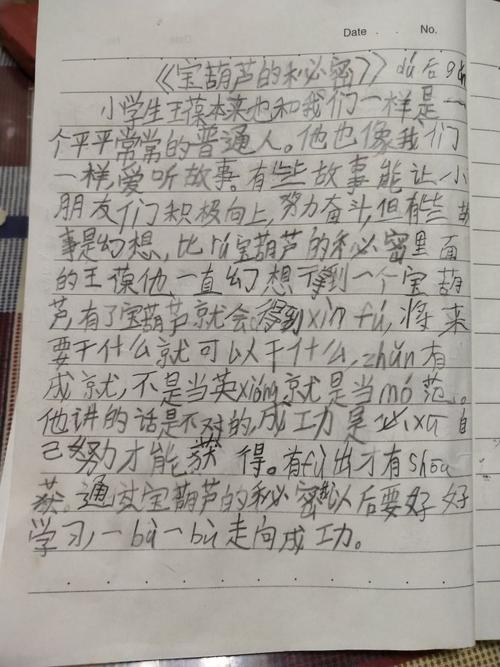 Date . . No.
《宝葫芦的秘密》dú后gǎn
小学生王葆本来也和我们一样是一
个平平常常的普通人。他也像我们
一样,爱听故事。有些故事能让小
朋友们积极向上,努力奋斗,但有些故
事是幻想,比rú宝葫芦的秘密里面
的王葆他一直幻想得到一个宝葫
芦,有了宝葫芦就会得到xìn fú,将来
要干什么就可以干什么,zhǔn有
成就,不是当英xióng就是当mó范。
他讲的话是不对的,成工力是必xū自
己努力才能获得。有fù出才有shōu
获。通过宝葫芦的秘密我以后要好好
学习,一bù一bù走向成工力。